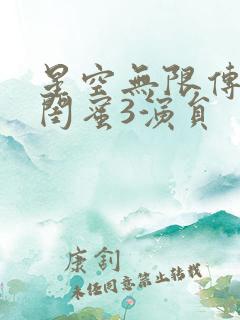 星空無限傳
閨蜜3-演員
康釗
未经同意禁止转载